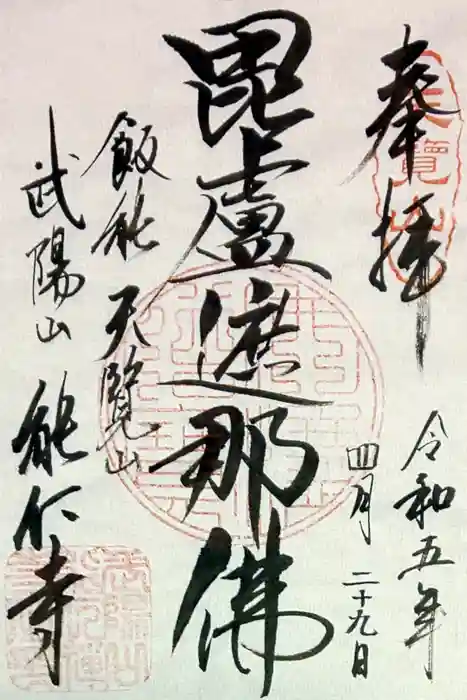 奉拝
天覧山
令和五年
四月二十九日
毘盧遮那佛
飯能天覧山
武陽山能仁寺